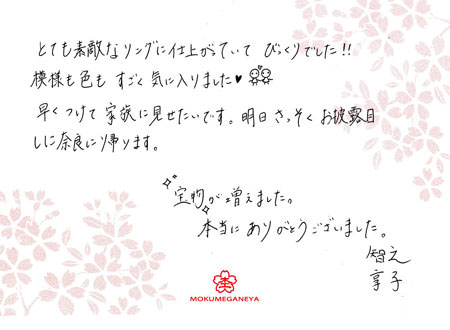 とても素敵なリングに仕上がっていて びっくりでした!!
模様も色も すごく気に入りました♥
早くつけて 家族に見せたいです。明日 さっそく お披露目
しに奈良に帰ります。
宝物が増えました。
本当に ありがとうございました。
智之
享子
MOKUMEGANEYA